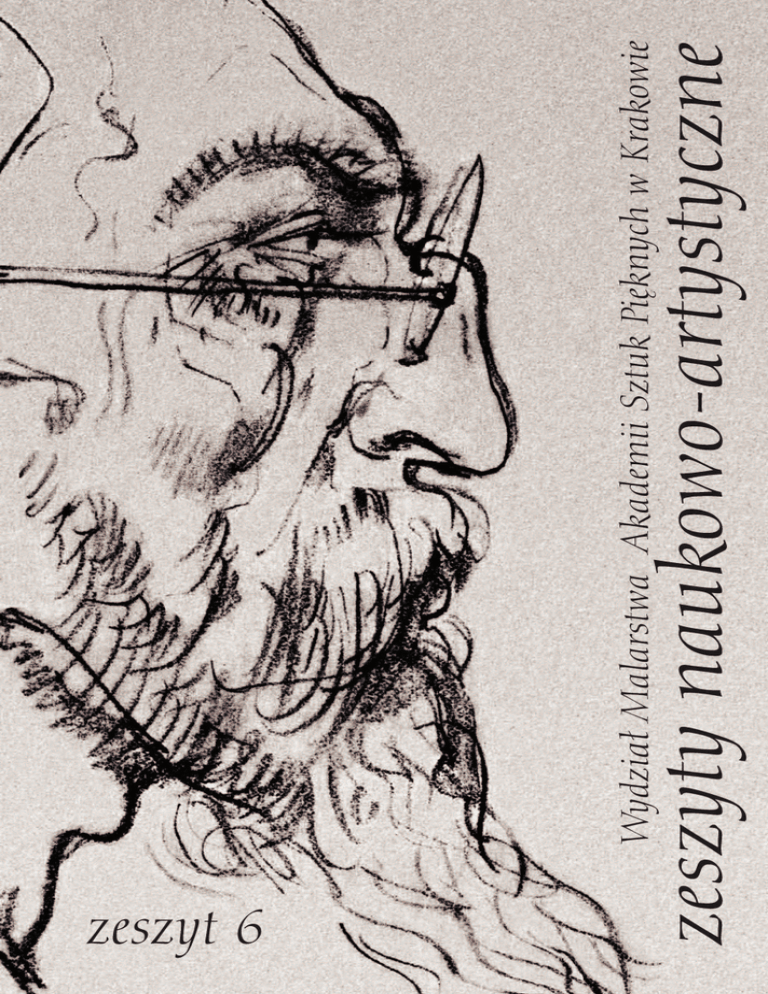 Wydział Malarstwa Akademii Sztuk Pięknych w Krakowie
zeszyty naukowo-artystyczne
zeszyt 6